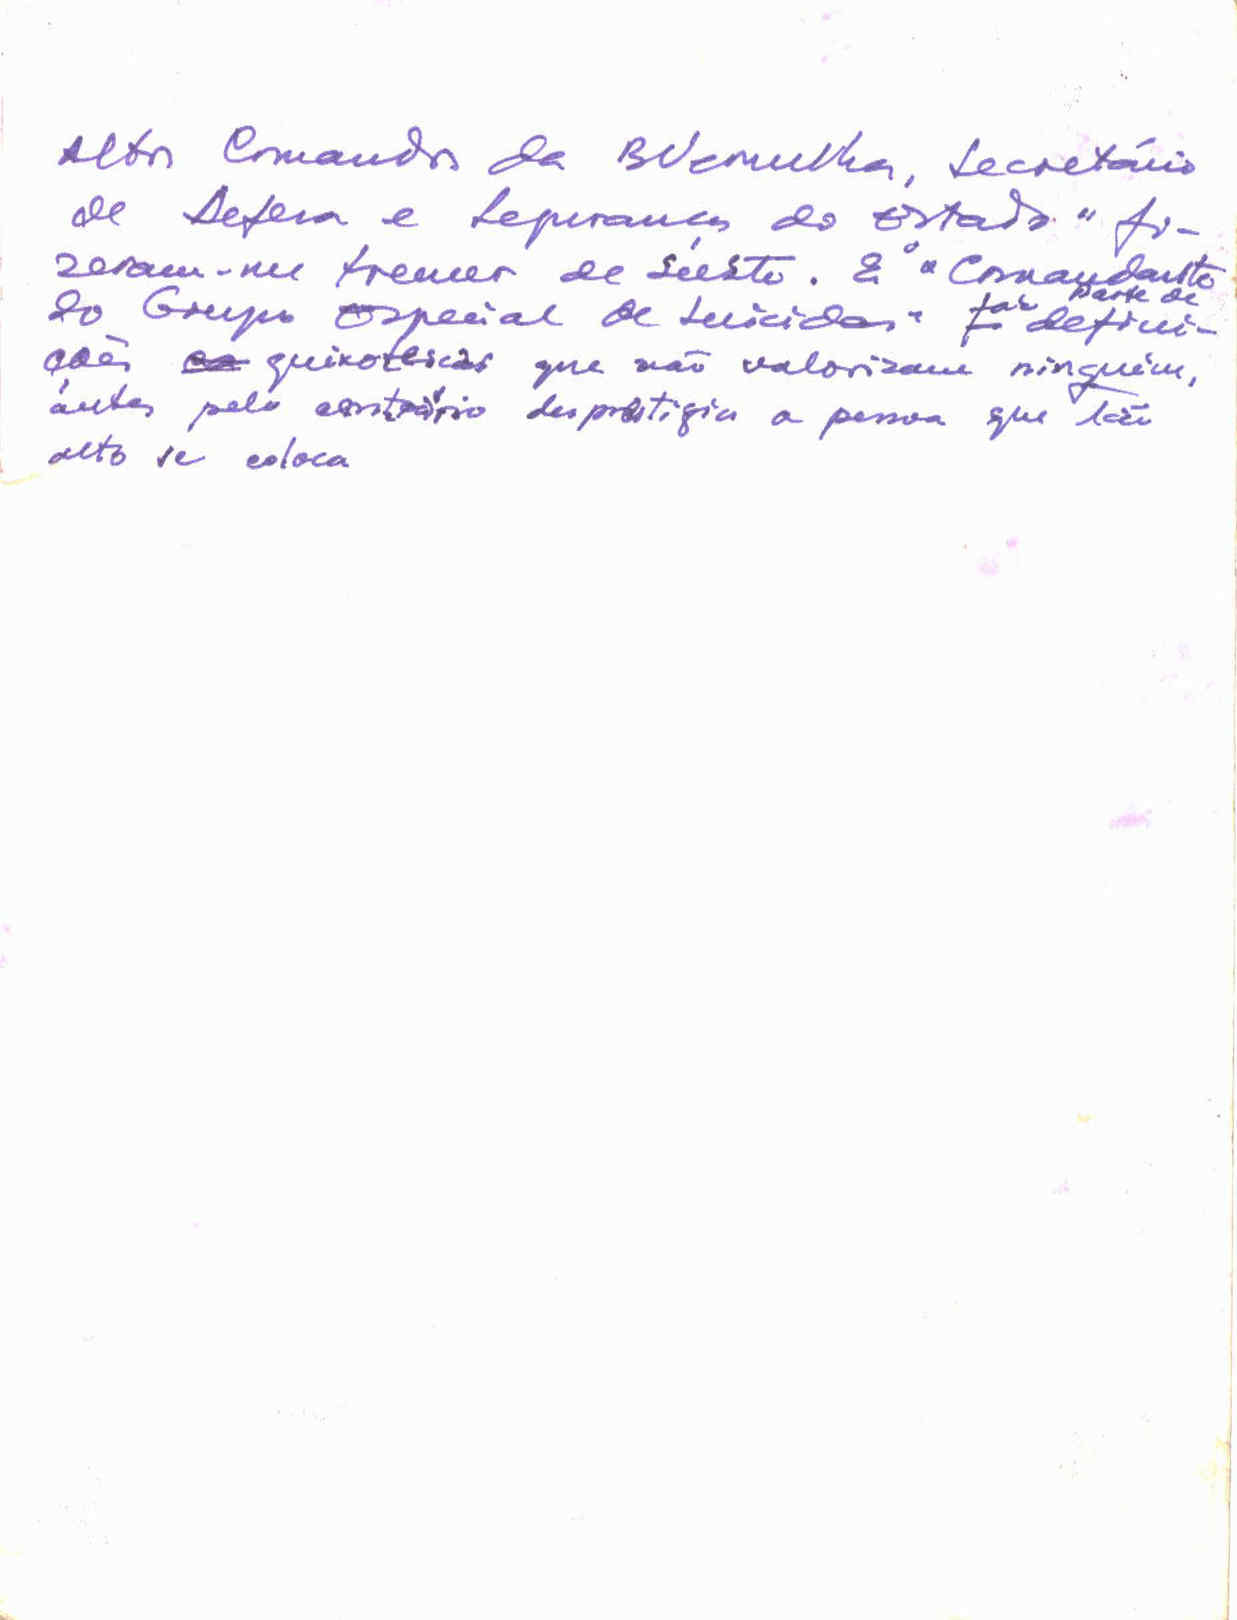 Altos Comandos da BVermelha, Secretário
de Defesa e Segurança do Estado" fi-
zeram-me tremer de susto. E o "Comandante
do Grupo Especial de Suicidas" faz parte de defini-
ções quixotescas que não valorizam ninguém,
antes pelo contrário desprestigia a pessoa que tão
alto se coloca